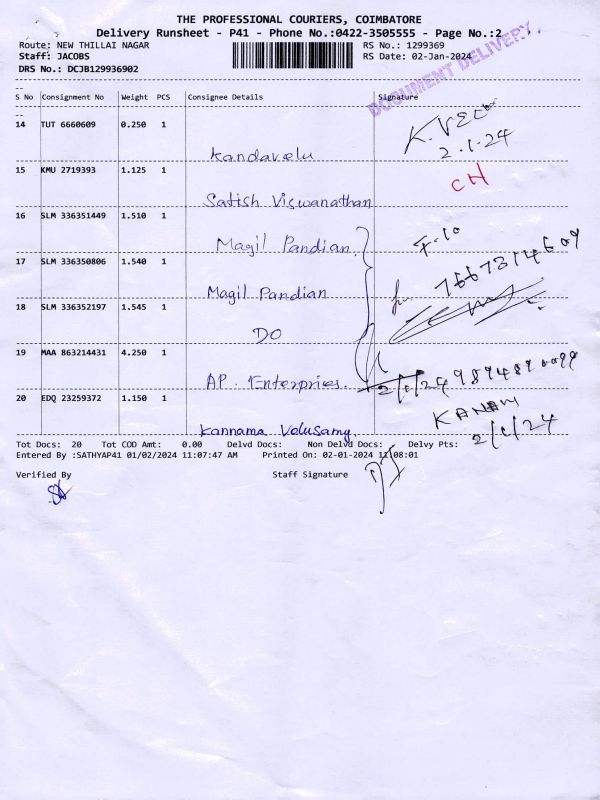 THE PROFESSIONAL COURIERS, COIMBATORE
Delivery Runsheet - P41 - Phone No.:0422-3505555 - Page No.:2
Route: NEW THILLAI NAGAR RS No.: 1299369
Staff: JACOBS RS Date: 02-Jan-2024
DRS No.: DCJB129936902
DOCUMENT DELIVERY
S No Consignment No Weight PCS Consignee Details Signature
14 TUT 6660609 0.250 1
Kandavelu K. VELU
2.1.24
15 KMU 2719393 1.125 1
Satish Viswanathan CH
16 SLM 336351449 1.510 1
Magil Pandian F-10
17 SLM 336350806 1.540 1
Magil Pandian 7667314609
18 SLM 336352197 1.545 1
DO
19 MAA 863214431 4.250 1
AP. Enterprises. 2/1/24
20 EDQ 23259372 1.150 1
Kannama Velusamy 2/1/24
Tot Docs: 20 Tot COD Amt: 0.00 Delvd Docs: Non Delvd Docs: Delvy Pts:
Entered By :SATHYAP41 01/02/2024 11:07:47 AM Printed On: 02-01-2024 11:08:01
Verified By Staff Signature